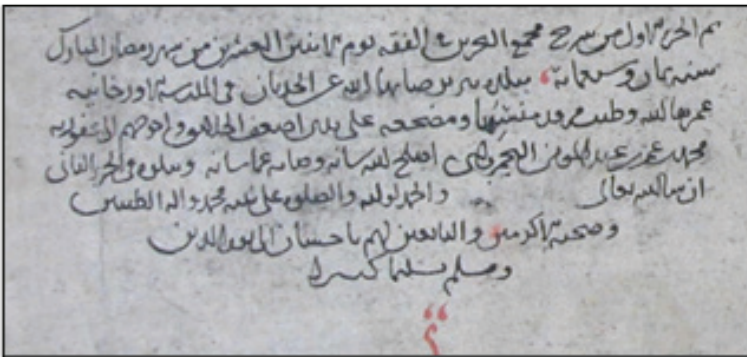 تم الجزء الاول من شرح مجمع البحرين في الفقه يوم الاثنين العشرين من شهر رمضان المبارك
سنة ثمان وسبعمائة ببلدة تبريز صانها الله عن الحدثان في المدرسة
عمرها الله وطيب مرقد منشئها ومصححه على يدي اضعف الخلق واحوجهم الى غفرانه
محمد بن عمر بن عبد المؤمن اصلح الله شانه وصانه عما شانه ويتلوه في الجزء الثاني
ان شاء الله تعالى والحمد لوليه والصلوة على نبيه محمد واله الطيبين
وصحبه الاكرمين والتابعين لهم باحسان الى يوم الدين
وسلم تسليما كثيرا